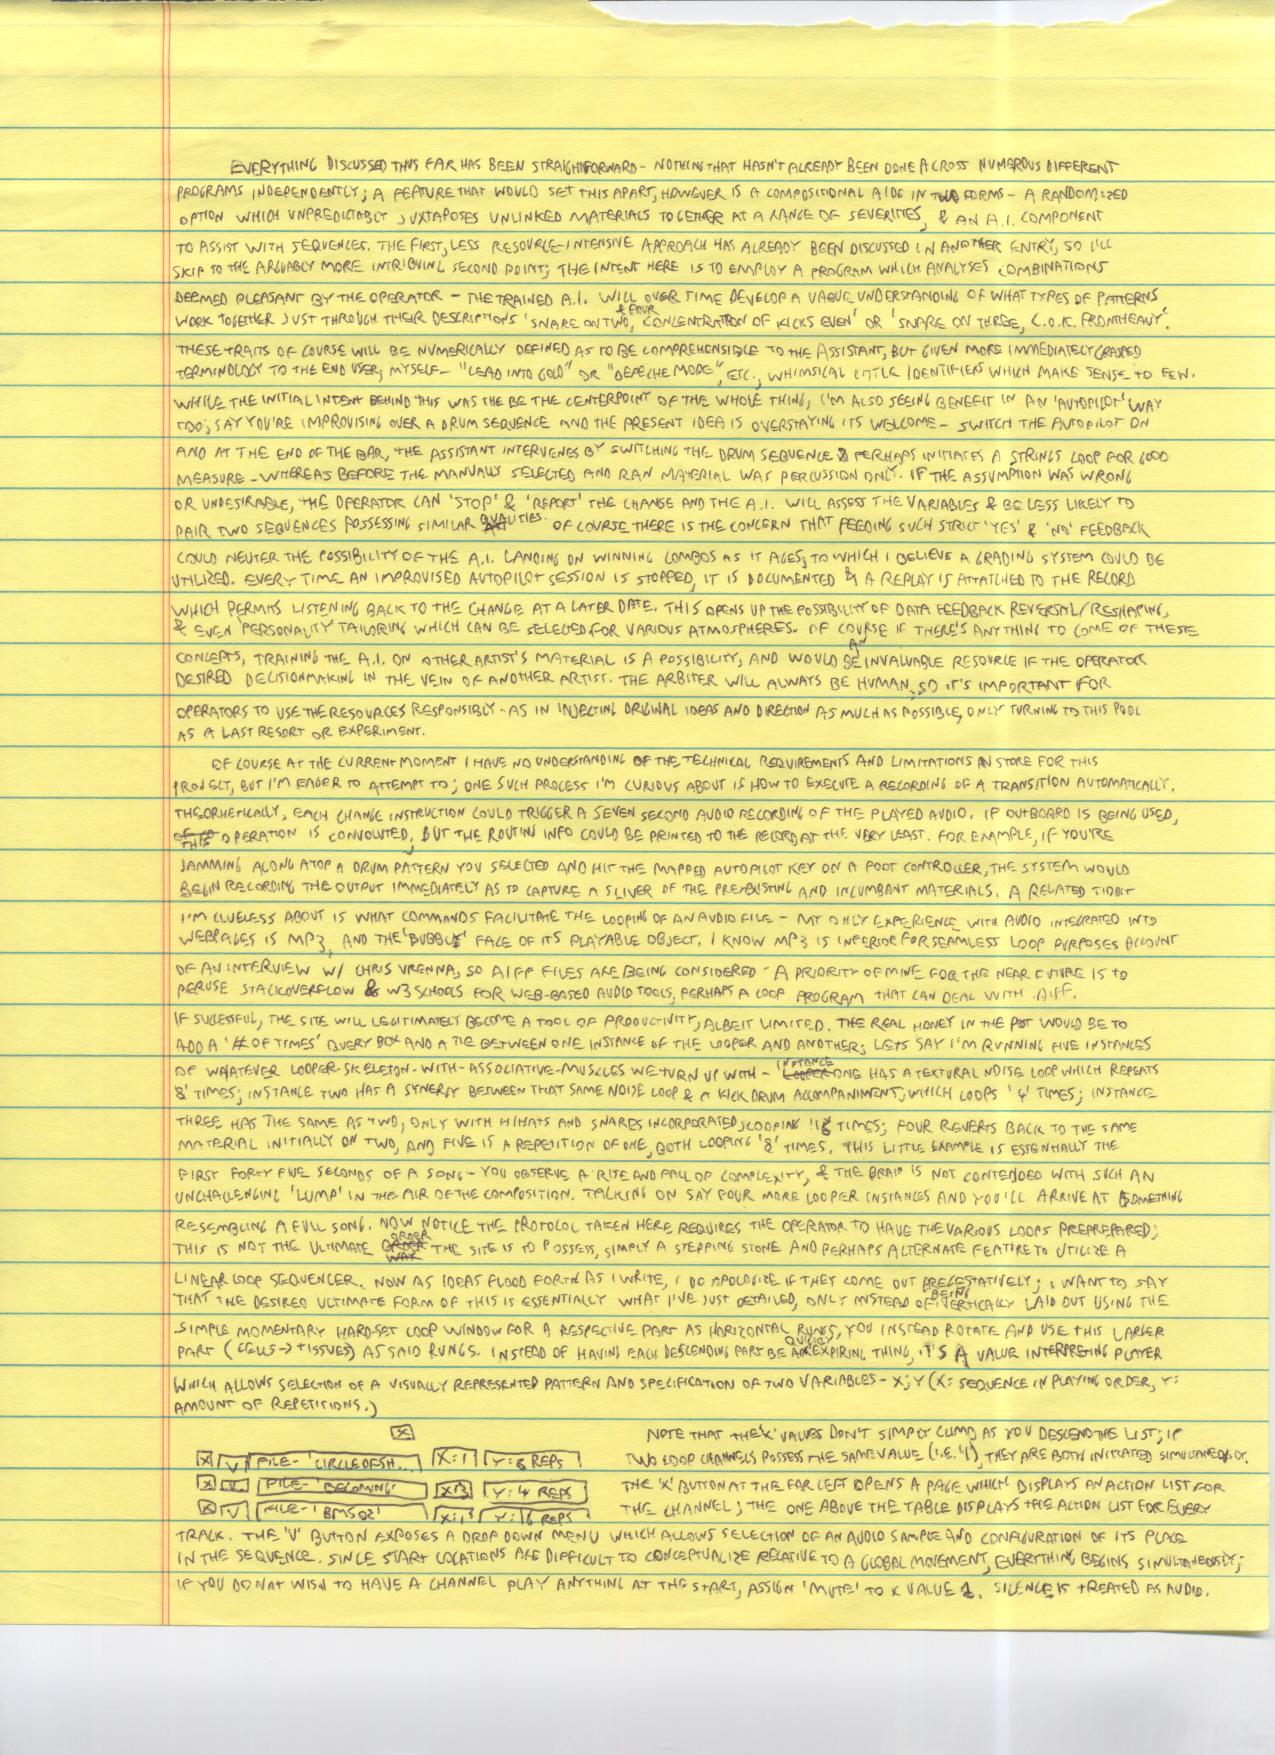 EVERYTHING DISCUSSED THUS FAR HAS BEEN STRAIGHTFORWARD - NOTHING THAT HASN'T ALREADY BEEN DONE ACROSS NUMEROUS DIFFERENT
PROGRAMS INDEPENDENTLY; A FEATURE THAT WOULD SET THIS APART, HOWEVER IS A COMPOSITIONAL AIDE IN TWO FORMS - A RANDOMIZED
OPTION WHICH UNPREDICTABLY JUXTAPOSES UNLINKED MATERIALS TOGETHER AT A RANGE OF SEVERITIES, & AN A.I. COMPONENT
TO ASSIST WITH SEQUENCES. THE FIRST, LESS RESOURCE-INTENSIVE APPROACH HAS ALREADY BEEN DISCUSSED IN ANOTHER ENTRY, SO I'LL
SKIP TO THE ARGUABLY MORE INTRIGUING SECOND POINT; THE INTENT HERE IS TO EMPLOY A PROGRAM WHICH ANALYSES COMBINATIONS
DEEMED PLEASANT BY THE OPERATOR - THE TRAINED A.I. WILL OVER TIME DEVELOP A VAGUE UNDERSTANDING OF WHAT TYPES OF PATTERNS
WORK TOGETHER JUST THROUGH THEIR DESCRIPTIONS 'SNARE ON TWO & FOUR, CONCENTRATION OF KICKS EVEN' OR 'SNARE ON THREE, C.O.K. FRONTHEAVY'.
THESE TRAITS OF COURSE WILL BE NUMERICALLY DEFINED AS TO BE COMPREHENSIBLE TO THE ASSISTANT, BUT GIVEN MORE IMMEDIATELY GRASPED
TERMINOLOGY TO THE END USER, MYSELF - "LEAD INTO GOLD" OR "DEPECHE MODE", ETC., WHIMSICAL LITTLE IDENTIFIERS WHICH MAKE SENSE TO FEW.
WHILE THE INITIAL INTENT BEHIND THIS WAS THE BE THE CENTERPOINT OF THE WHOLE THING, I'M ALSO SEEING BENEFIT IN AN 'AUTOPILOT' WAY
TOO; SAY YOU'RE IMPROVISING OVER A DRUM SEQUENCE AND THE PRESENT IDEA IS OVERSTAYING ITS WELCOME - SWITCH THE AUTOPILOT ON
AND AT THE END OF THE BAR, THE ASSISTANT INTERVENES BY SWITCHING THE DRUM SEQUENCE & PERHAPS INITIATES A STRINGS LOOP FOR GOOD
MEASURE - WHEREAS BEFORE THE MANUALLY SELECTED AND RAN MATERIAL WAS PERCUSSION ONLY. IF THE ASSUMPTION WAS WRONG
OR UNDESIRABLE, THE OPERATOR CAN 'STOP' & 'REPORT' THE CHANGE AND THE A.I. WILL ASSESS THE VARIABLES & BE LESS LIKELY TO
PAIR TWO SEQUENCES POSSESSING SIMILAR QUALITIES. OF COURSE THERE IS THE CONCERN THAT FEEDING SUCH STRICT 'YES' & 'NO' FEEDBACK
COULD NEUTER THE POSSIBILITY OF THE A.I. LANDING ON WINNING COMBOS AS IT AGES, TO WHICH I BELIEVE A GRADING SYSTEM COULD BE
UTILIZED. EVERY TIME AN IMPROVISED AUTOPILOT SESSION IS STOPPED, IT IS DOCUMENTED & A REPLAY IS ATTATCHED TO THE RECORD
WHICH PERMITS LISTENING BACK TO THE CHANGE AT A LATER DATE. THIS OPENS UP THE POSSIBILITY OF DATA FEEDBACK REVERSAL/RESHAPING,
& EVEN 'PERSONALITY' TAILORING WHICH CAN BE SELECTED FOR VARIOUS ATMOSPHERES. OF COURSE IF THERE'S ANYTHING TO COME OF THESE
CONCEPTS, TRAINING THE A.I. ON OTHER ARTIST'S MATERIAL IS A POSSIBILITY, AND WOULD BE AN INVALUABLE RESOURCE IF THE OPERATOR
DESIRED DECISIONMAKING IN THE VEIN OF ANOTHER ARTIST. THE ARBITER WILL ALWAYS BE HUMAN, SO IT'S IMPORTANT FOR
OPERATORS TO USE THE RESOURCES RESPONSIBLY - AS IN INJECTING ORIGINAL IDEAS AND DIRECTION AS MUCH AS POSSIBLE, ONLY TURNING TO THIS POOL
AS A LAST RESORT OR EXPERIMENT.
OF COURSE AT THE CURRENT MOMENT I HAVE NO UNDERSTANDING OF THE TECHNICAL REQUIREMENTS AND LIMITATIONS IN STORE FOR THIS
PROJECT, BUT I'M EAGER TO ATTEMPT TO; ONE SUCH PROCESS I'M CURIOUS ABOUT IS HOW TO EXECUTE A RECORDING OF A TRANSITION AUTOMATICALLY.
THEORHETICALLY, EACH CHANGE INSTRUCTION COULD TRIGGER A SEVEN SECOND AUDIO RECORDING OF THE PLAYED AUDIO. IF OUTBOARD IS BEING USED,
THIS OPERATION IS CONVOLUTED, BUT THE ROUTING INFO COULD BE PRINTED TO THE RECORD AT THE VERY LEAST. FOR EXAMPLE, IF YOU'RE
JAMMING ALONG ATOP A DRUM PATTERN YOU SELECTED AND HIT THE MAPPED AUTOPILOT KEY ON A FOOT CONTROLLER, THE SYSTEM WOULD
BEGIN RECORDING THE OUTPUT IMMEDIATELY AS TO CAPTURE A SLIVER OF THE PREEXISTING AND INCUMBANT MATERIALS. A RELATED TIDBIT
I'M CLUELESS ABOUT IS WHAT COMMANDS FACILITATE THE LOOPING OF AN AUDIO FILE - MY ONLY EXPERIENCE WITH AUDIO INTEGRATED INTO
WEBPAGES IS MP3, AND THE 'BUBBLY' FACE OF ITS PLAYABLE OBJECT. I KNOW MP3 IS INFERIOR FOR SEAMLESS LOOP PURPOSES ACCOUNT
OF AN INTERVIEW W/ CHRIS VRENNA, SO AIFF FILES ARE BEING CONSIDERED - A PRIORITY OF MINE FOR THE NEAR FUTURE IS TO
PERUSE STACKOVERFLOW & W3 SCHOOLS FOR WEB-BASED AUDIO TOOLS, PERHAPS A LOOP PROGRAM THAT CAN DEAL WITH .AIFF.
IF SUCCESSFUL, THE SITE WILL LEGITIMATELY BECOME A TOOL OF PRODUCTIVITY, ALBEIT LIMITED. THE REAL HONEY IN THE POT WOULD BE TO
ADD A '# OF TIMES' QUERY BOX AND A TIE BETWEEN ONE INSTANCE OF THE LOOPER AND ANOTHER; LETS SAY I'M RUNNING FIVE INSTANCES
OF WHATEVER LOOPER-SKELETON-WITH-ASSOCIATIVE-MUSCLES WE TURN UP WITH - INSTANCE ONE HAS A TEXTURAL NOISE LOOP WHICH REPEATS
'8' TIMES; INSTANCE TWO HAS A SYNERGY BETWEEN THAT SAME NOISE LOOP & A KICK DRUM ACCOMPANIMENT, WHICH LOOPS '4' TIMES; INSTANCE
THREE HAS THE SAME AS TWO, ONLY WITH HIHATS AND SNARES INCORPORATED, LOOPING '16' TIMES; FOUR REVERTS BACK TO THE SAME
MATERIAL INITIALLY ON TWO, AND FIVE IS A REPETITION OF ONE, BOTH LOOPING '8' TIMES. THIS LITTLE EXAMPLE IS ESSENTIALLY THE
FIRST FORTY FIVE SECONDS OF A SONG - YOU OBSERVE A RISE AND FALL OF COMPLEXITY, & THE BRAIN IS NOT CONTENDED WITH SUCH AN
UNCHALLENGING 'LUMP' IN THE AIR OF THE COMPOSITION. TACKING ON SAY FOUR MORE LOOPER INSTANCES AND YOU'LL ARRIVE AT SOMETHING
RESEMBLING A FULL SONG. NOW NOTICE THE PROTOCOL TAKEN HERE REQUIRES THE OPERATOR TO HAVE THE VARIOUS LOOPS PREPREPARED;
THIS IS NOT THE ULTIMATE ORDER THE SITE IS TO POSSESS, SIMPLY A STEPPING STONE AND PERHAPS ALTERNATE FEATURE TO UTILIZE A
LINEAR LOOP SEQUENCER. NOW AS IDEAS FLOOD FORTH AS I WRITE, I DO APOLOGIZE IF THEY COME OUT; I WANT TO SAY
THAT THE DESIRED ULTIMATE FORM OF THIS IS ESSENTIALLY WHAT I'VE JUST DETAILED, ONLY INSTEAD OF BEING VERTICALLY LAID OUT USING THE
SIMPLE MOMENTARY HARD-SET LOOP WINDOW FOR A RESPECTIVE PART AS HORIZONTAL RUNGS, YOU INSTEAD ROTATE AND USE THIS LARGER
PART (CELLS -> TISSUES) AS SAID RUNGS. INSTEAD OF HAVING EACH DESCENDING PART BE A QUICKLY EXPIRING THING, IT'S A VALUE INTERPRETING PLAYER
WHICH ALLOWS SELECTION OF A VISUALLY REPRESENTED PATTERN AND SPECIFICATION OF TWO VARIABLES - X; Y (X = SEQUENCE IN PLAYING ORDER, Y =
AMOUNT OF REPETITIONS.)
X
X V FILE - 'CIRCLEOFSH... X:1 Y:8 REPS
X V FILE - 'BECOMING' X:3 Y:4 REPS
X V FILE - 'BMS02' X:1 Y:16 REPS
NOTE THAT THE 'X' VALUES DON'T SIMPLY CLIMB AS YOU DESCEND THE LIST; IF
TWO LOOP CHANNELS POSSESS THE SAME VALUE (I.E. '4'), THEY ARE BOTH INITIATED SIMULTANEOUSLY.
THE 'X' BUTTON AT THE FAR LEFT OPENS A PAGE WHICH DISPLAYS AN ACTION LIST FOR
THE CHANNEL; THE ONE ABOVE THE TABLE DISPLAYS THE ACTION LIST FOR EVERY
TRACK. THE 'V' BUTTON EXPOSES A DROP DOWN MENU WHICH ALLOWS SELECTION OF AN AUDIO SAMPLE AND CONFIGURATION OF ITS PLACE
IN THE SEQUENCE. SINCE START LOCATIONS ARE DIFFICULT TO CONCEPTUALIZE RELATIVE TO A GLOBAL MOVEMENT, EVERYTHING BEGINS SIMULTANEOUSLY;
IF YOU DO NOT WISH TO HAVE A CHANNEL PLAY ANYTHING AT THE START, ASSIGN 'MUTE' TO X VALUE 1. SILENCE IS TREATED AS AUDIO.